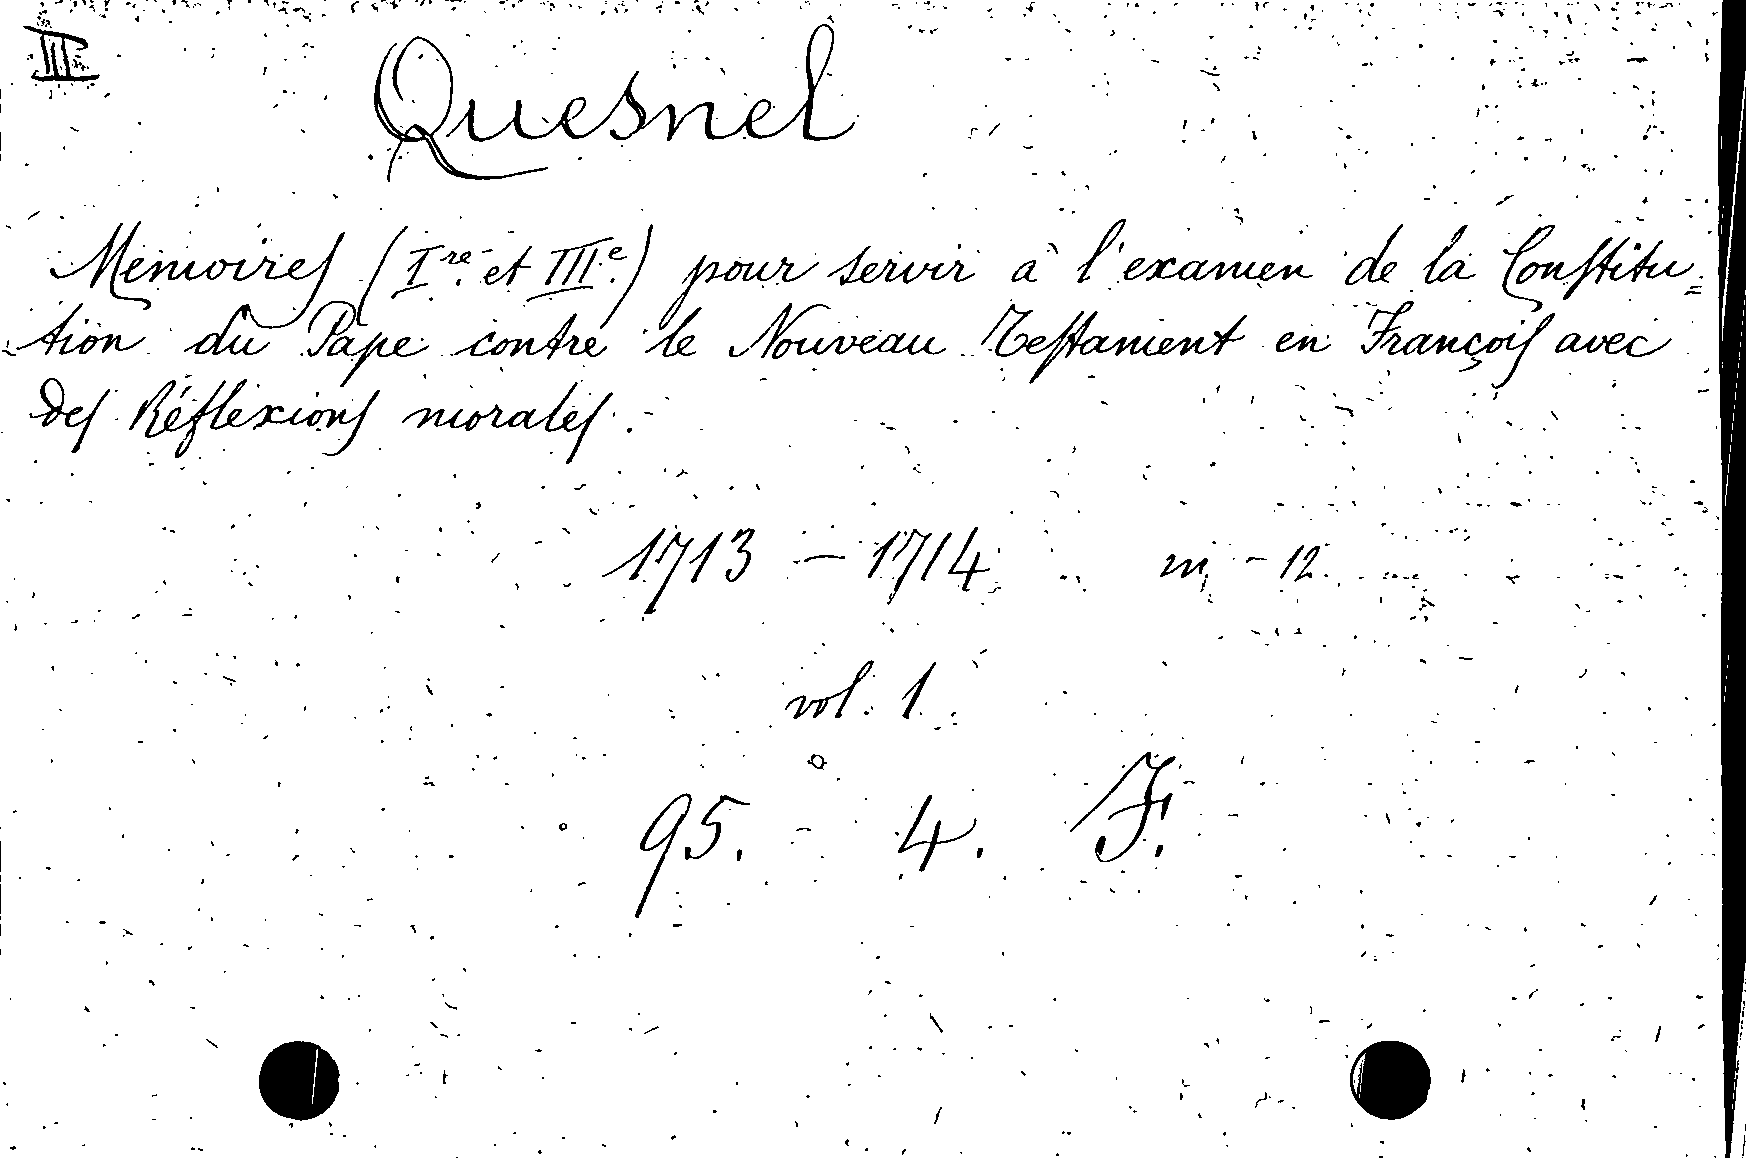 III
Quesnel
Memoires (Ire. et IIIe.) pour servir à l'examen de la Constitu=
tion du Pape contre le Nouveau Testament en François avec
des Réflexions morales.
1713 - 1714 in - 12.
vol. 1.
95. 4. F.